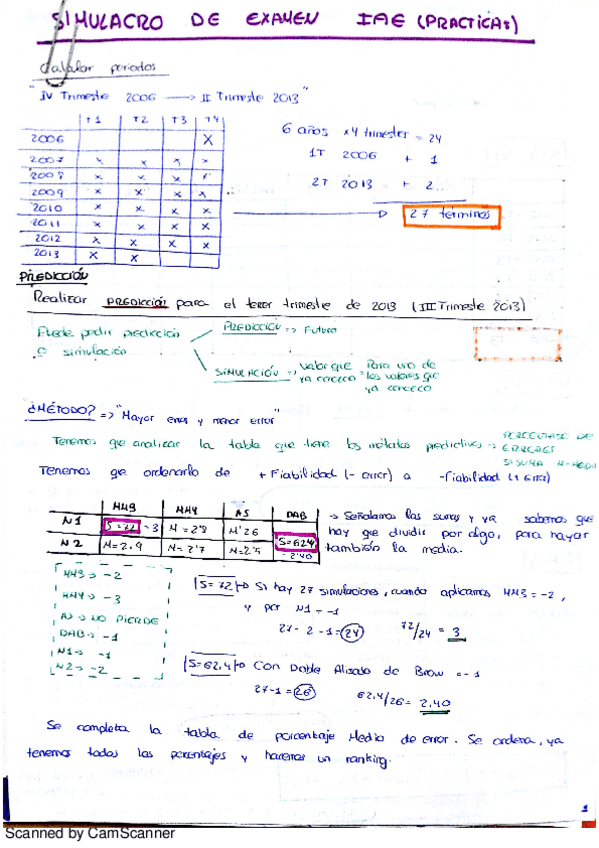 SIMULACRO DE EXAMEN IAE (PRACTICAS)
Calcular periodos
"IV Trimestre 2006 → II Trimestre 2013"
T1 T2 T3 T4
2006 X
2007 x x x x
2008 x x x x
2009 x x x x
2010 x x x x
2011 x x x x
2012 x x x x
2013 x x
6 años x4 trimester = 24
1T 2006 + 1
2T 2013 = + 2
27 términos
PREDICCIÓN
Realizar PREDICCIÓN para el tercer trimestre de 2013 (III Trimestre 2013)
Puede pedir predicción
o simulación
PREDICCIÓN => Futuro
SIMULACIÓN => valor que ya conozco = Para uno de los valores que ya conozco
¿MÉTODO? => "Mayor error y menor error"
Tenemos que analizar la tabla que tiene los métodos predictivos →
PORCENTAJE DE
ERRORES
Tenemos que ordenarlo de + Fiabilidad (- error) a - Fiabilidad (+ Error)
MM3 MM4 AS DAB
N1 S=72 - 3 M=2'8 M'26 S=62.4
N2 M=2.9 M=2'7 M=2'5 - 2'40
→ Señalamos las sumas y ya sabemos que
hay que dividir por algo, para hayar
también la media.
MM3 → -2
MM4 → -3
AS → NO PIERDE
DAB → -1
N1 → -1
N2 → -2
S=72 → Si hay 27 simulaciones, cuando aplicamos MM3 = -2,
y por N1 = -1
27 - 2 - 1 = 24 72/24 = 3
S=62.4 → Con Doble Alisado de Brow = -1
27-1 = 26 62.4/26 = 2.40
Se completa la tabla de porcentaje Medio de error. Se ordena, ya
tenemos todos los porcentajes y haremos un ranking.
1
Scanned by CamScanner